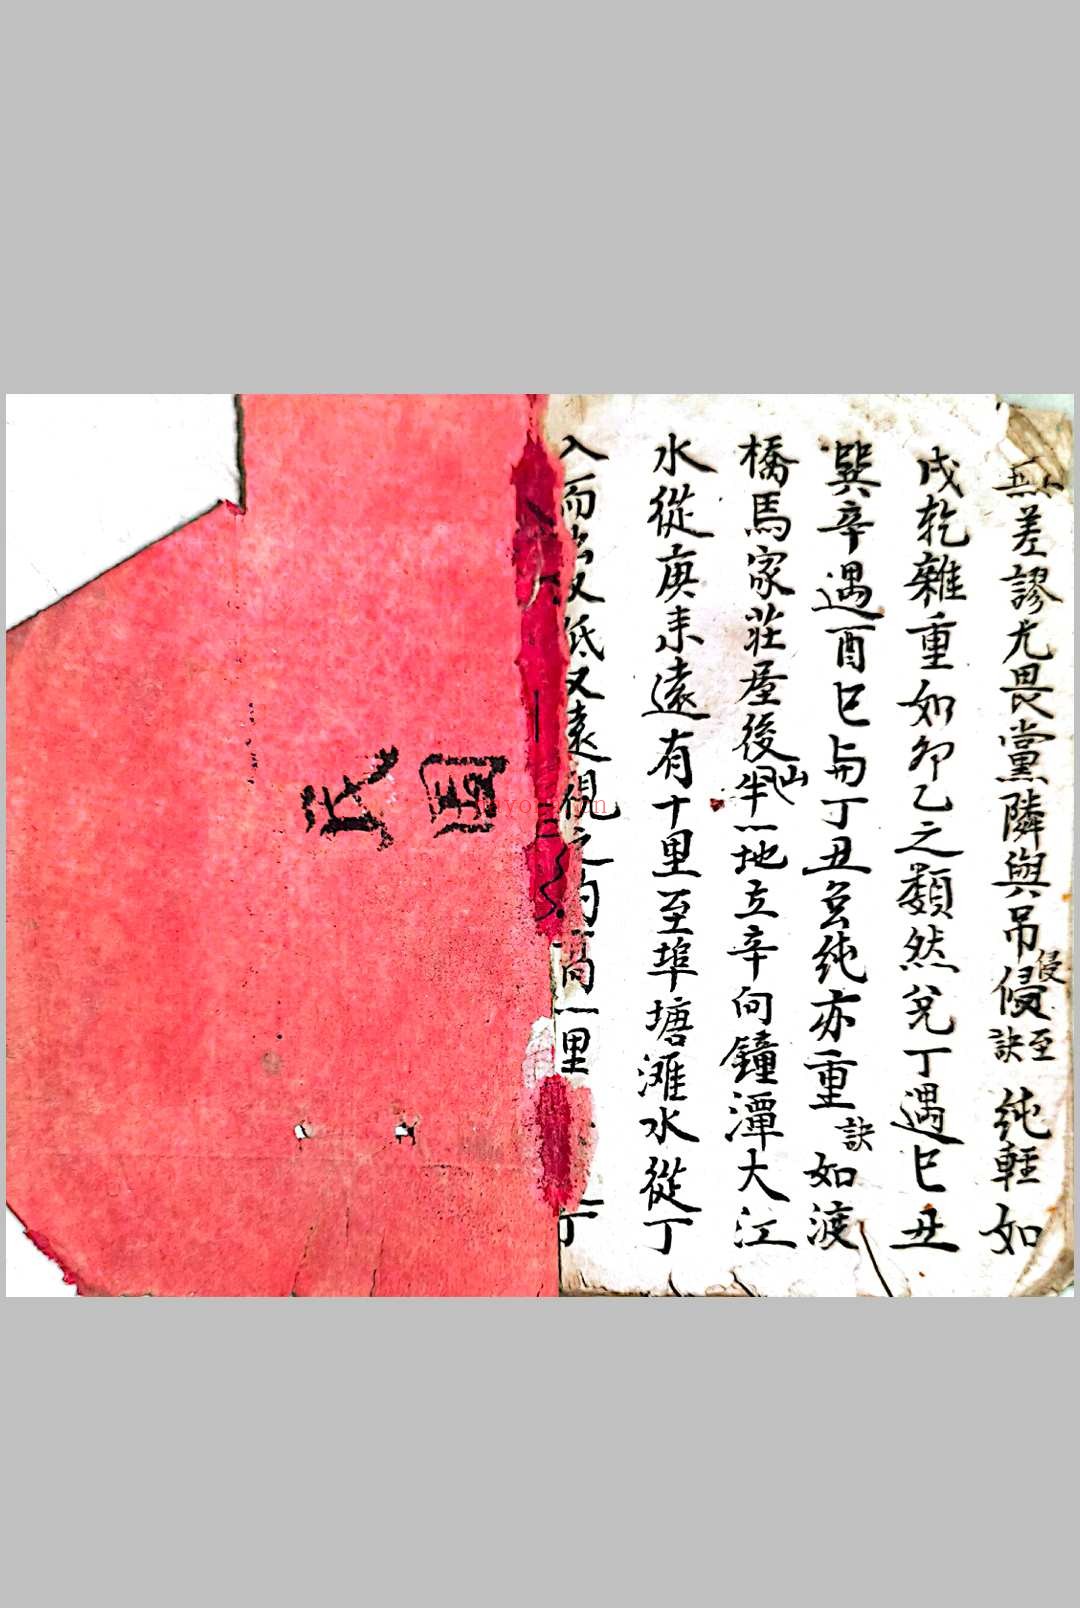 無差謬尤畏黨隣與吊侵侵至訣純輕如
戌乾雜重如卯乙之類然兌丁遇巳丑
巽辛遇酉巳与丁丑為純亦重訣如渡
橋馬家莊屋後山半一地立辛向鐘潭大江
水從庚來遠有十里至埠塘滩水從丁
入而出又低又遠視之约高一里丁
民国